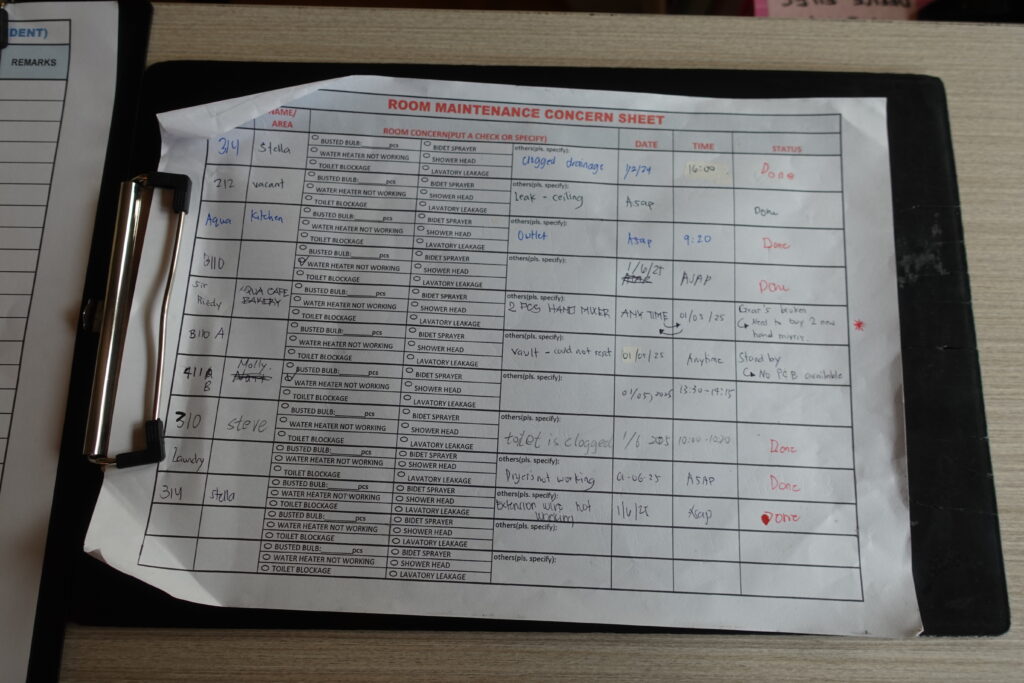 DENT)
REMARKS
ROOM MAINTENANCE CONCERN SHEET
NAME/
AREA
ROOM CONCERN(PUT A CHECK OR SPECIFY)
DATE
TIME
STATUS
314 Stella
BUSTED BULB:______pcs
BIDET SPRAYER
WATER HEATER NOT WORKING
SHOWER HEAD
TOILET BLOCKAGE
LAVATORY LEAKAGE
others(pls. specify):
Clogged drainage
1/2/24
16:00
Done
212 vacant
BUSTED BULB:______pcs
BIDET SPRAYER
WATER HEATER NOT WORKING
SHOWER HEAD
TOILET BLOCKAGE
LAVATORY LEAKAGE
others(pls. specify):
leak - ceiling
Asap
Done
Aqua Kitchen
BUSTED BULB:______pcs
BIDET SPRAYER
WATER HEATER NOT WORKING
SHOWER HEAD
TOILET BLOCKAGE
LAVATORY LEAKAGE
others(pls. specify):
Outlet
Asap
9:20
Done
BUSTED BULB:______pcs
BIDET SPRAYER
WATER HEATER NOT WORKING
SHOWER HEAD
TOILET BLOCKAGE
LAVATORY LEAKAGE
others(pls. specify):
1/6/25
ASAP
Done
Sir
AQUA CAFE
BAKERY
BUSTED BULB:______pcs
BIDET SPRAYER
WATER HEATER NOT WORKING
SHOWER HEAD
TOILET BLOCKAGE
LAVATORY LEAKAGE
others(pls. specify):
2 PCS HAND MIXER
ANY TIME
01/03/25
Gear's broken
Need to buy 2 new
hand mixer.
*
B110 A
BUSTED BULB:______pcs
BIDET SPRAYER
WATER HEATER NOT WORKING
SHOWER HEAD
TOILET BLOCKAGE
LAVATORY LEAKAGE
others(pls. specify):
Vault - could not reset
Anytime
Stand by
No PCB available
411A
B
Molly.
BUSTED BULB:______pcs
BIDET SPRAYER
WATER HEATER NOT WORKING
SHOWER HEAD
TOILET BLOCKAGE
LAVATORY LEAKAGE
others(pls. specify):
01/05, 2025
13:30-14:15
310 steve
BUSTED BULB:______pcs
BIDET SPRAYER
WATER HEATER NOT WORKING
SHOWER HEAD
TOILET BLOCKAGE
LAVATORY LEAKAGE
others(pls. specify):
toilet is clogged
1/6 2025
10:00-10:20
Done
Laundry
BUSTED BULB:______pcs
BIDET SPRAYER
WATER HEATER NOT WORKING
SHOWER HEAD
TOILET BLOCKAGE
LAVATORY LEAKAGE
others(pls. specify):
Dryer is not working
01-06-25
ASAP
Done
314 stella
BUSTED BULB:______pcs
BIDET SPRAYER
WATER HEATER NOT WORKING
SHOWER HEAD
TOILET BLOCKAGE
LAVATORY LEAKAGE
others(pls. specify):
Extension wire not
working
1/6/25
Asap
Done
BUSTED BULB:______pcs
BIDET SPRAYER
WATER HEATER NOT WORKING
SHOWER HEAD
TOILET BLOCKAGE
LAVATORY LEAKAGE
others(pls. specify):
BUSTED BULB:______pcs
BIDET SPRAYER
WATER HEATER NOT WORKING
SHOWER HEAD
TOILET BLOCKAGE
LAVATORY LEAKAGE
others(pls. specify):